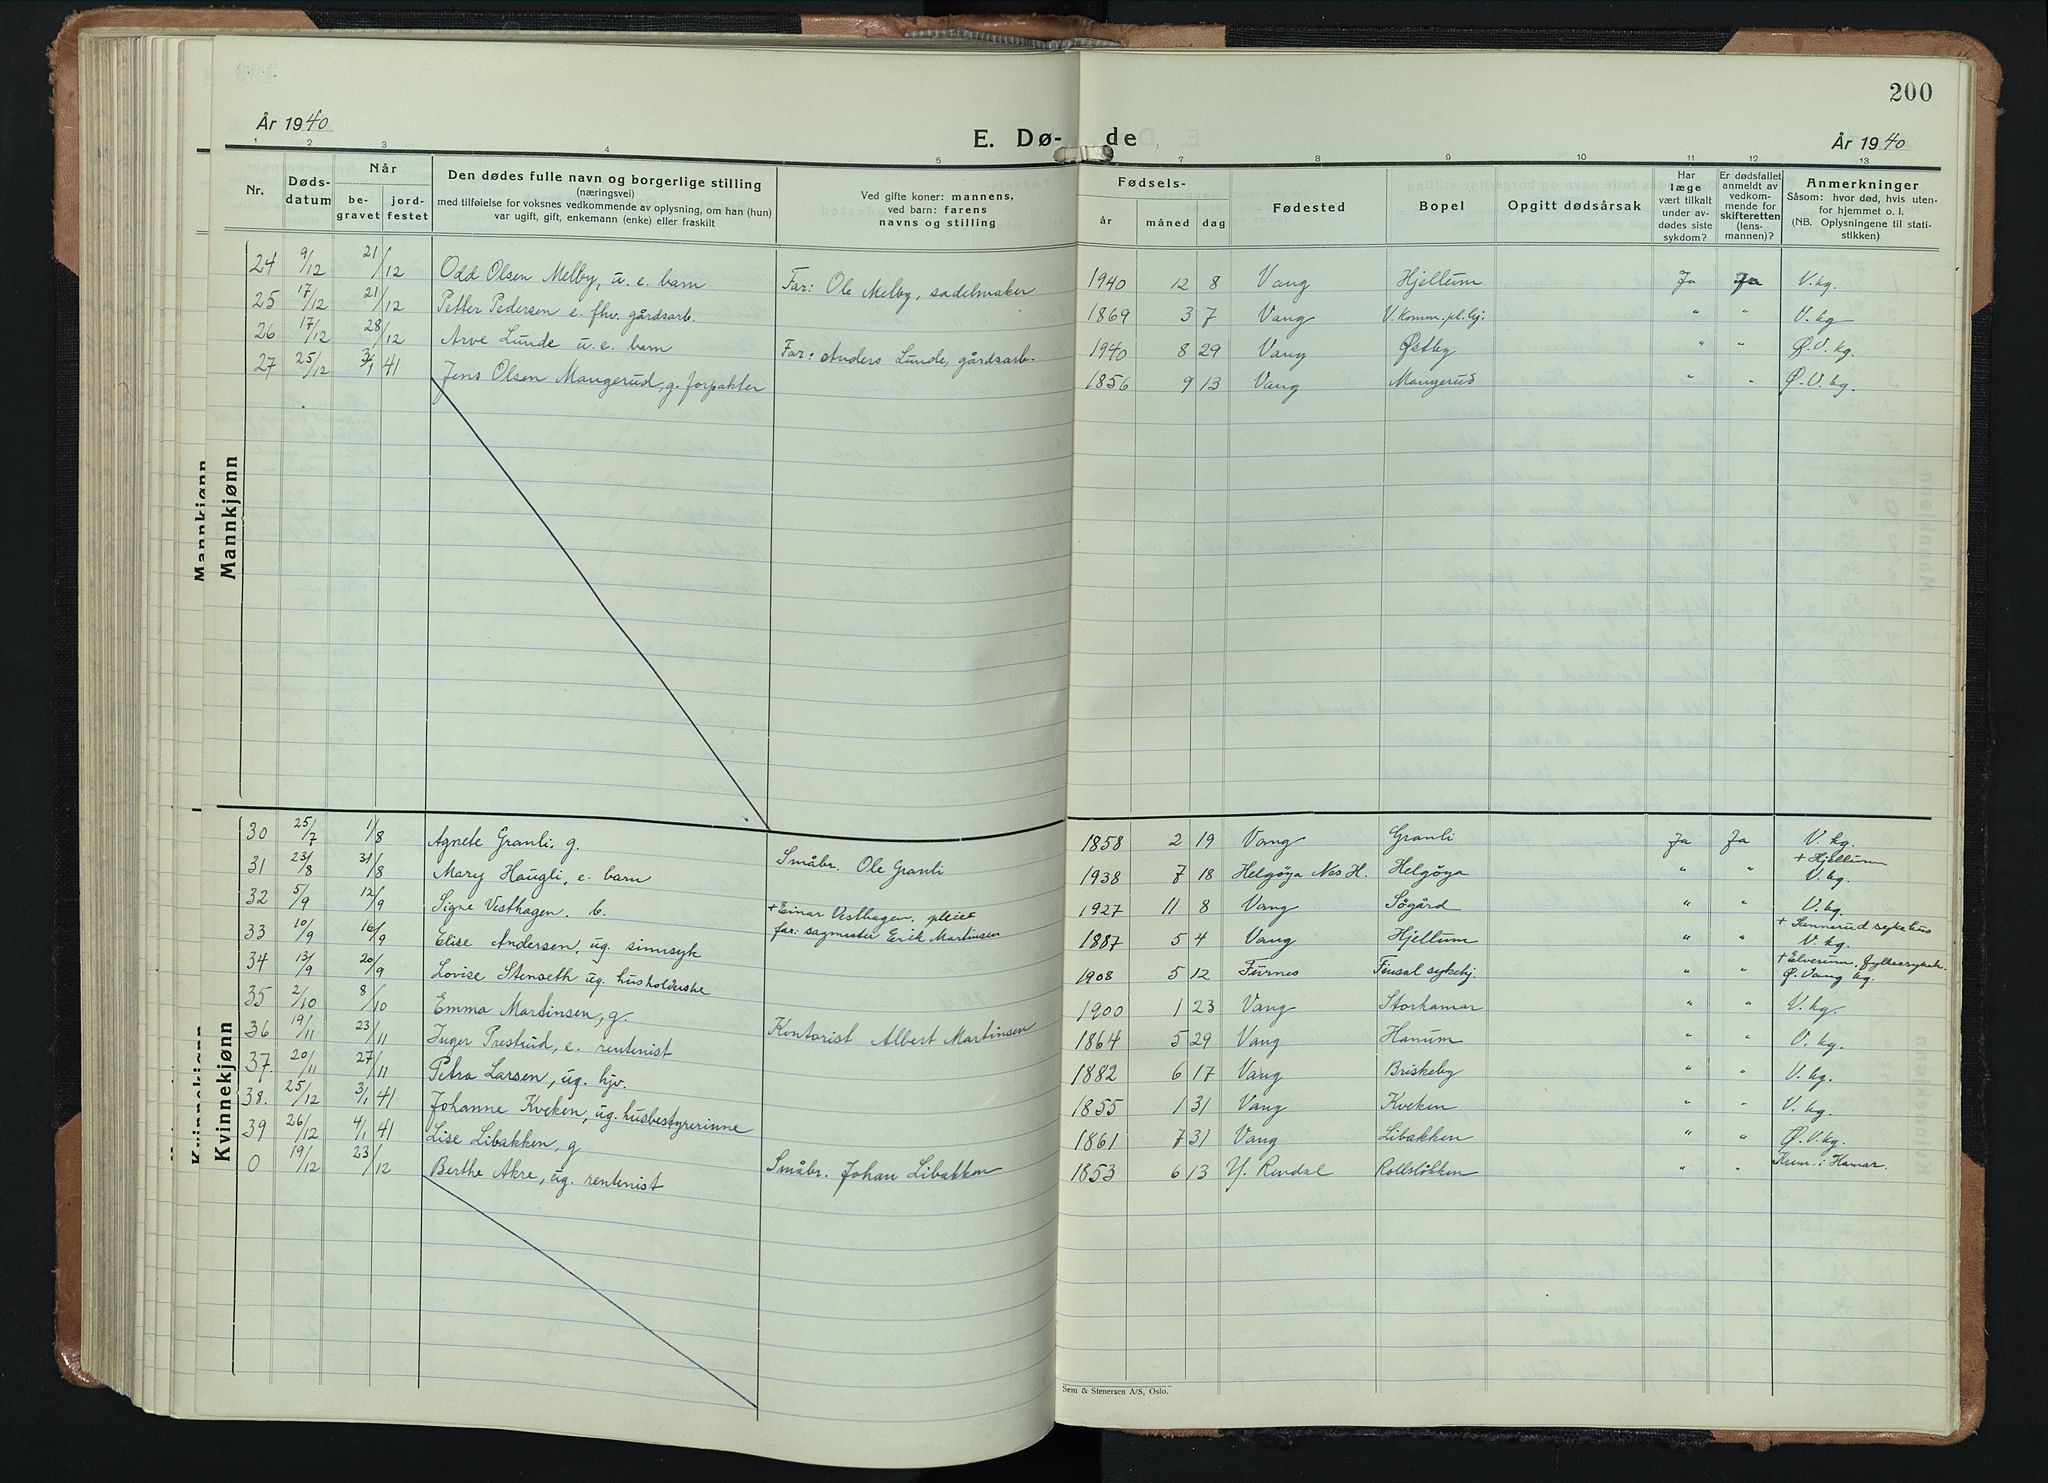 200
År 1940
E. Dø- de
År 1940
1 2 3 4 5 7 8 9 10 11 12 13
Nr.
Døds-
datum
Når
be-
gravet
jord-
festet
Den dødes fulle navn og borgerlige stilling
(næringsvei)
med tilføielse for voksnes vedkommende av oplysning, om han (hun)
var ugift, gift, enkemann (enke) eller fraskilt
Ved gifte koner: mannens,
ved barn: farens
navns og stilling
Fødsels-
år måned dag
Fødested
Bopel
Opgitt dødsårsak
Har
læge
vært tilkalt
under av-
dødes siste
sykdom?
Er dødsfallet
anmeldt av
vedkom-
mende for
skifteretten
(lens-
mannen)?
Anmerkninger
Såsom: hvor død, hvis uten-
for hjemmet o. l.
(NB. Oplysningene til stati-
stikken)
Mannkjønn
Mannkjønn
24 9/12 21/12 Odd Olsen Melby, u. e. barn Far: Ole Melby, sadelmaker 1940 12 8 Vang Hjellum Ja Ja V. kg.
25 17/12 21/12 Petter Pedersen e. fhv. gårdsarb. 1869 3 7 Vang V. Komm. pl. hj. " " V. kg
26 17/12 28/12 Arve Lunde u. e. barn Far: Anders Lunde, gårdsarb. 1940 8 29 Vang Østby " " Ø. V. kg.
27 25/12 3/1 41 Jens Olsen Maugerud, g. forpakter 1856 9 13 Vang Maugerud " " Ø. V. kg.
Kvinnekjønn
Kvinnekjønn
30 25/7 1/8 Agnete Granli, g. Småbr. Ole Granli 1858 2 19 Vang Granli Ja Ja V. kg.
31 23/8 31/8 Mary Haugli, e. barn 1938 7 18 Helgøya Nes H. Helgøya " " + Hjellum
V. kg.
32 5/9 12/9 Signe Vesthagen. b. + Einar Vesthagen, pleie
far: sagmester Erik Martinsen 1927 11 8 Vang Søgård " " V. kg.
33 10/9 16/9 Elise Andersen, ug. sinnsyk 1887 5 4 Vang Hjellum " " + sykehus
V. kg.
34 13/9 20/9 Lovise Stenseth ug. husholderske 1908 5 12 Furnes Finsal sykehj. " " + Elverum, fylkessykeh.
Ø. Vang kg.
35 2/10 8/10 Emma Martinsen, g. Kontorist Albert Martinsen 1900 1 23 Vang Storhamar " " V. kg.
36 19/11 23/11 Inger Prestrud, e. rentenist 1864 5 29 Vang Hanum " " V. kg.
37 20/11 27/11 Petra Larsen, ug. hjv. 1882 6 17 Vang Briskeby " " V. kg.
38. 25/12 3/1 41 Johanne Kveken, ug. husbestyrerinne 1855 1 31 Vang Kveken " " V. kg.
39 26/12 4/1 41 Lise Libakken, g Småbr. Johan Libakken 1861 7 31 Vang Libakken " " Ø. V. kg.
0 19/12 23/12 Berthe Akre, ug. rentenist 1853 6 13 Y. Rendal Rollsløkken " " Krem. i Hamar.
Sem & Stenersen A/S, Oslo.